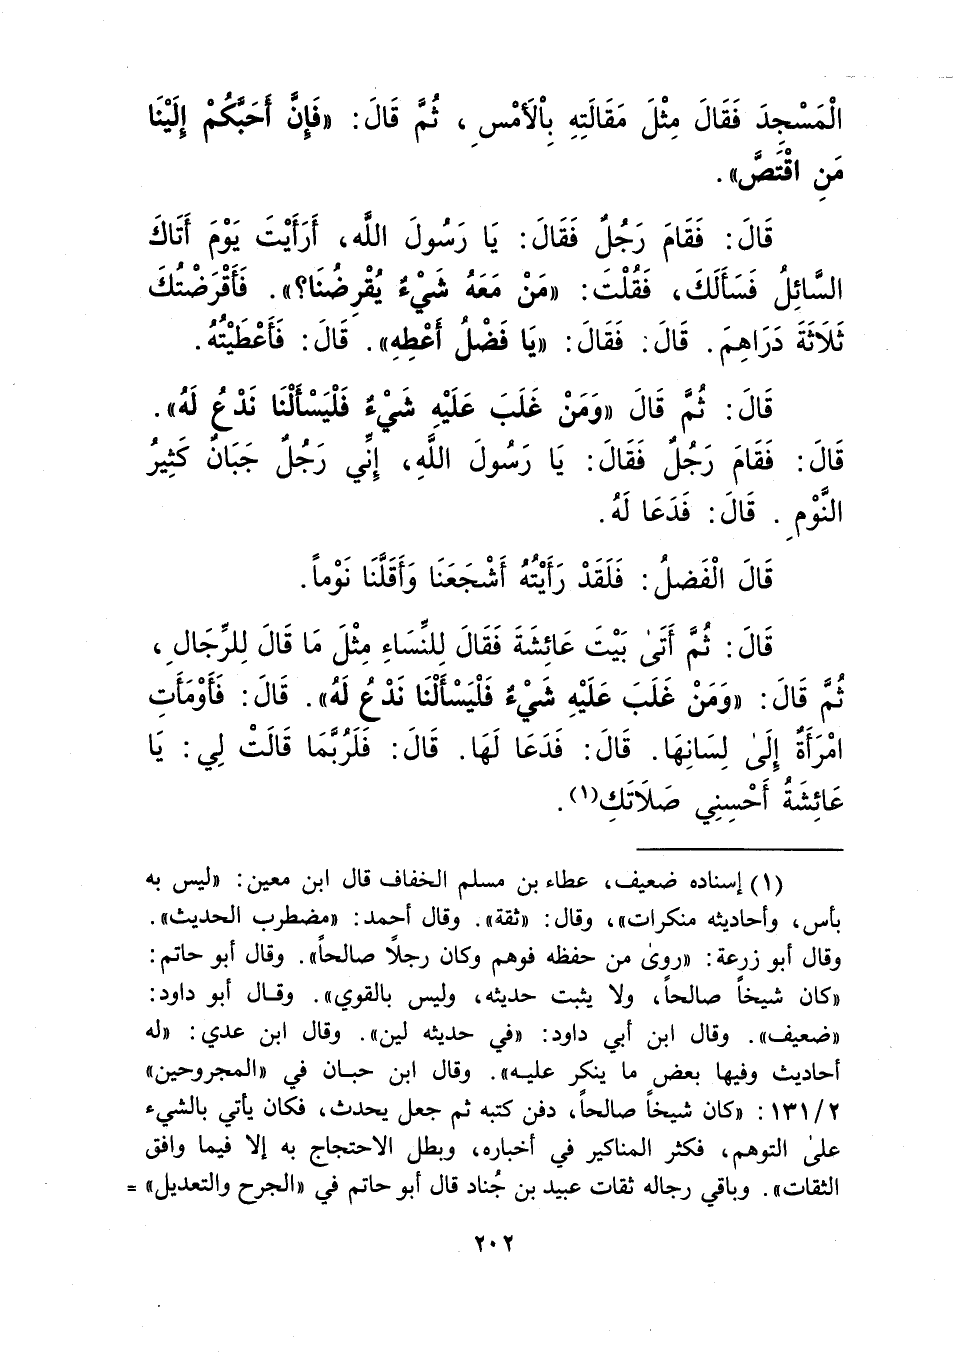 الْمَسْجِدَ فَقَالَ مِثْلَ مَقَالَتِهِ بِالْأَمْسِ، ثُمَّ قَالَ: «فَإِنَّ أَحَبَّكُمْ إِلَيْنَا
مَنِ اقْتَصَّ».
قَالَ: فَقَامَ رَجُلٌ فَقَالَ: يَا رَسُولَ اللَّه، أَرَأَيْتَ يَوْمَ أَتَاكَ
السَّائِلُ فَسَأَلَكَ، فَقُلْتَ: «مَنْ مَعَهُ شَيْءٌ يُقْرِضُنَا؟». فَأَقْرَضْتُكَ
ثَلَاثَةَ دَرَاهِمَ. قَالَ: فَقَالَ: «يَا فَضْلُ أَعْطِهِ». قَالَ: فَأَعْطَيْتُهُ.
قَالَ: ثُمَّ قَالَ «وَمَنْ غَلَبَ عَلَيْهِ شَيْءٌ فَلْيَسْأَلْنَا نَدْعُ لَهُ».
قَالَ: فَقَامَ رَجُلٌ فَقَالَ: يَا رَسُولَ اللَّهِ، إِنِّي رَجُلٌ جَبَانٌ كَثِيرُ
النَّوْمِ. قَالَ: فَدَعَا لَهُ.
قَالَ الْفَضلُ: فَلَقَدْ رَأَيْتُهُ أَشْجَعَنَا وَأَقَلَّنَا نَوْماً.
قَالَ: ثُمَّ أَتَىٰ بَيْتَ عَائِشَةَ فَقَالَ لِلنِّسَاءِ مِثْلَ مَا قَالَ لِلرِّجَالِ،
ثُمَّ قَالَ: «وَمَنْ غَلَبَ عَلَيْهِ شَيْءٌ فَلْيَسْأَلْنَا نَدْعُ لَهُ». قَالَ: فَأَوْمَأَتِ
امْرَأَةٌ إِلَىٰ لِسَانِهَا. قَالَ: فَدَعَا لَهَا. قَالَ: فَلَرُبَّمَا قَالَتْ لِي: يَا
عَائِشَةُ أَحْسِنِي صَلَاتَكِ(١).
(١) إسناده ضعيف، عطاء بن مسلم الخفاف قال ابن معين: «ليس به
بأس، وأحاديثه منكرات»، وقال: «ثقة». وقال أحمد: «مضطرب الحديث».
وقال أبو زرعة: «روىٰ من حفظه فوهم وكان رجلاً صالحاً». وقال أبو حاتم:
«كان شيخاً صالحاً، ولا يثبت حديثه، وليس بالقوي». وقال أبو داود:
«ضعيف». وقال ابن أبي داود: «في حديثه لين». وقال ابن عدي: «له
أحاديث وفيها بعض ما ينكر عليه». وقال ابن حبان في «المجروحين»
٢/ ١٣١: «كان شيخاً صالحاً، دفن كتبه ثم جعل يحدث، فكان يأتي بالشيء
علىٰ التوهم، فكثر المناكير في أخباره، وبطل الاحتجاج به إلا فيما وافق
الثقات». وباقي رجاله ثقات عبيد بن جُناد قال أبو حاتم في «الجرح والتعديل» =
٢٠٢